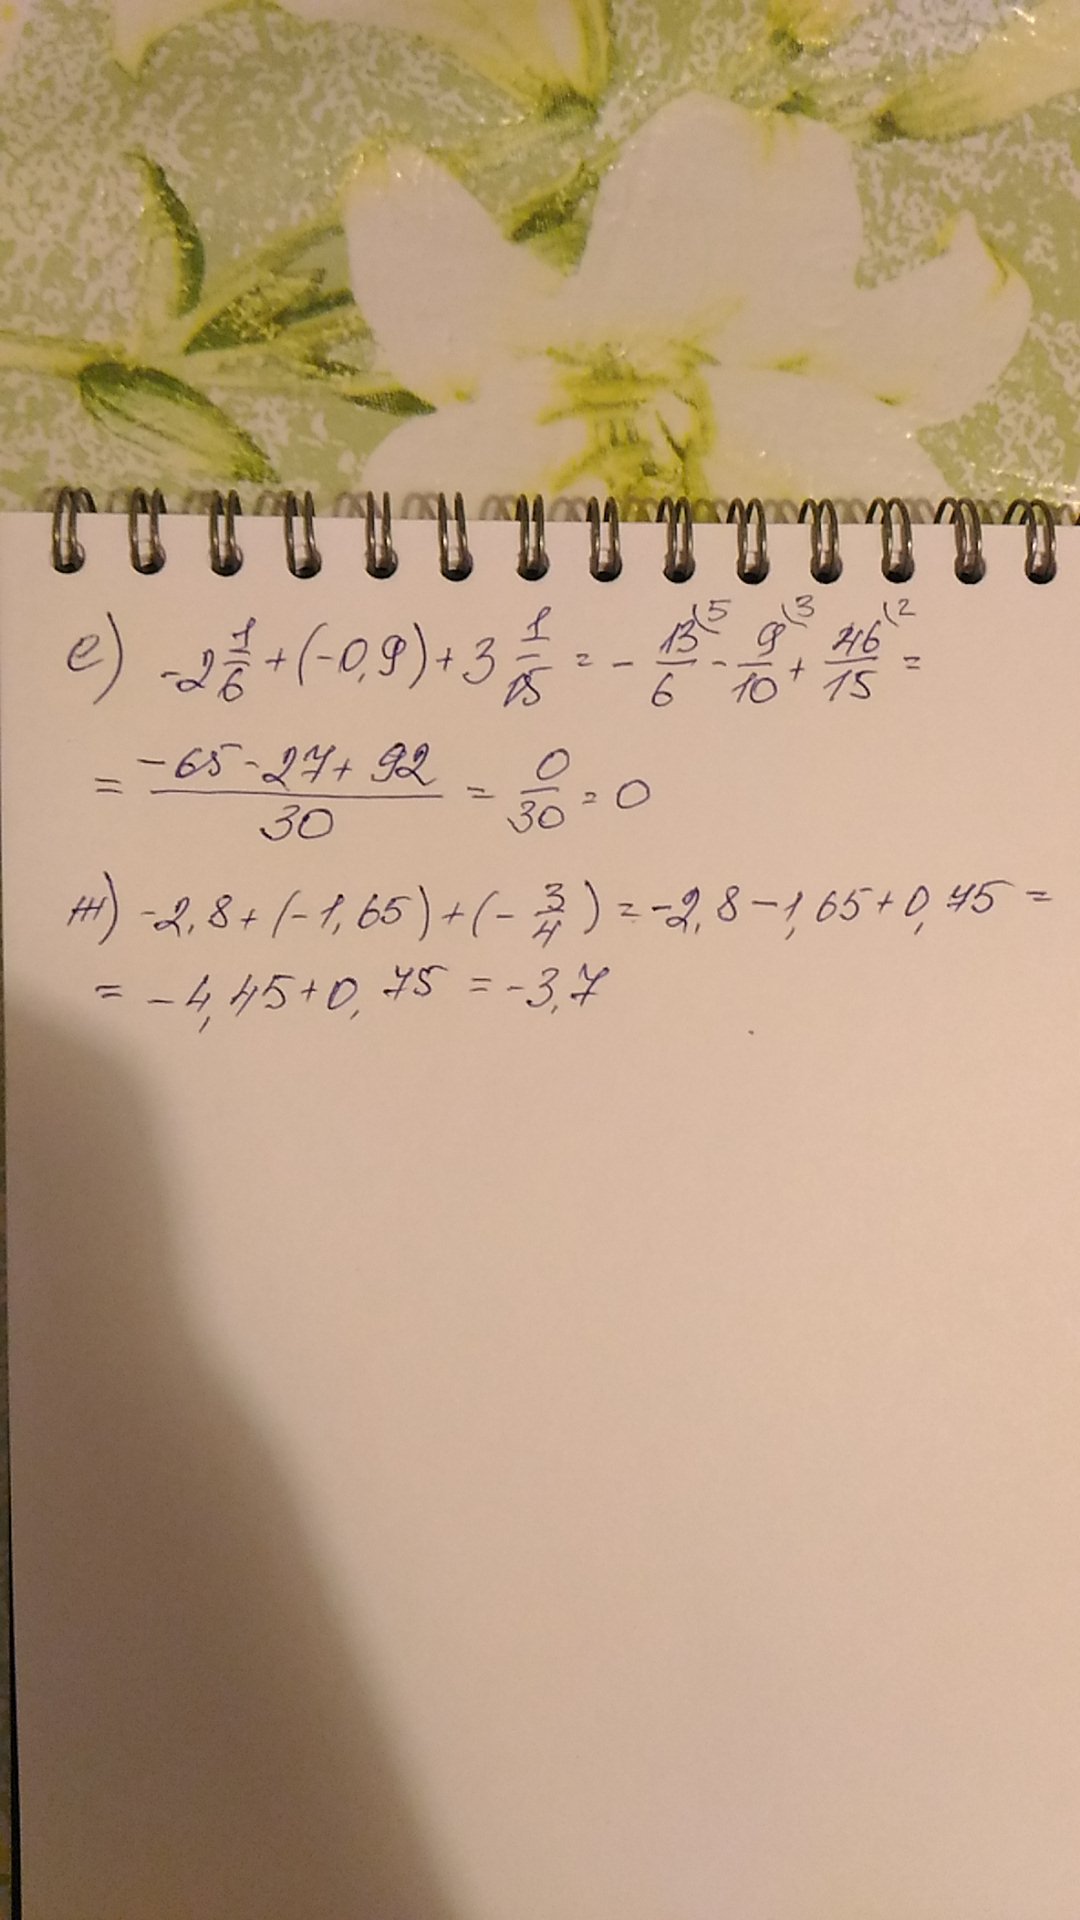 е) -2 1/6 + (-0,9) + 3 1/15 = - 13\5/6 - 9\3/10 + 46\2/15 =
= -65-27+92/30 = 0/30 = 0
ж) -2,8 + (-1,65) + (- 3/4) = -2,8 - 1,65 + 0,75 =
= -4,45 + 0,75 = -3,7